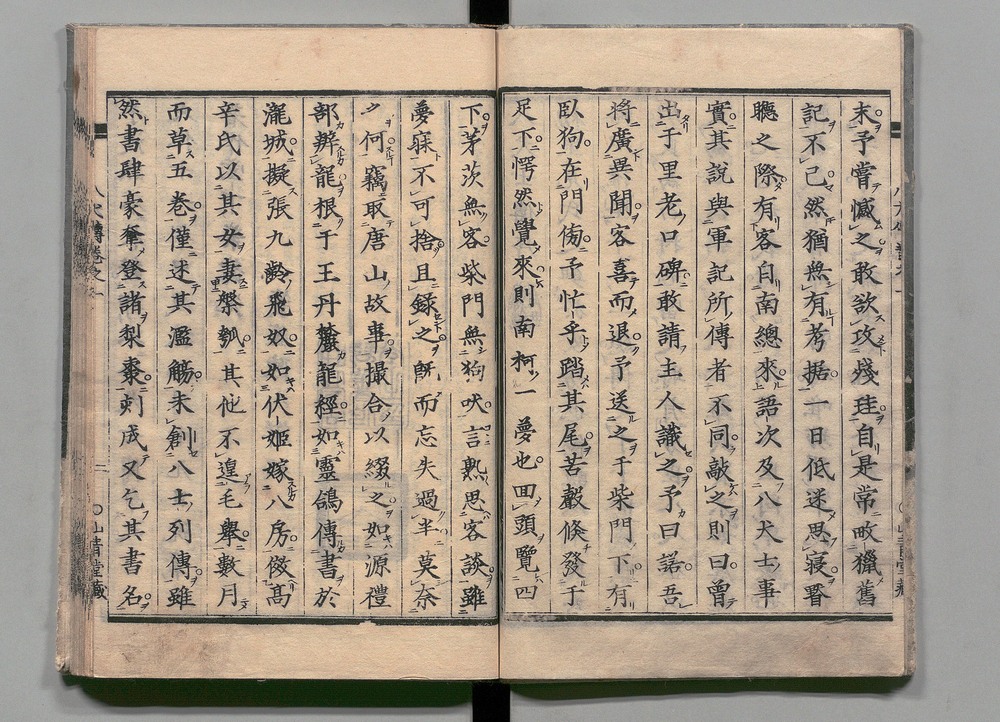 末予嘗憾之敢欲攻殘珪自是常畋獵舊
記不已然猶無有考据一日低迷思寢瞀
聽之際有客自南總來語次及八犬士事
實其說與軍記所傳者不同敲之則曰曾
出于里老口碑敢請主人識之予曰諾吾
將廣異聞客喜而退予送之于柴門下有
臥狗在門傍予忙乎踏其尾苦聲倏發于
足下愕然覺來則南柯一夢也回頭覽四
下茅茨無客柴門無狗吠言熟思客談雖
夢寐不可捨且錄之既而忘失過半莫奈
之何竊取唐山故事撮合以綴之如源禮
部辨龍根于王丹麓龍經如靈鴿傳書於
瀧城擬張九齡飛奴如伏姬嫁八房倣高
辛氏以其女妻槃瓠其他不遑毛舉數月
而草五卷僅述其濫觴未創八士列傳雖
然書肆豪奪登諸梨棗刻成又乞其書名
八犬傳卷之一 二 〇山青堂藏